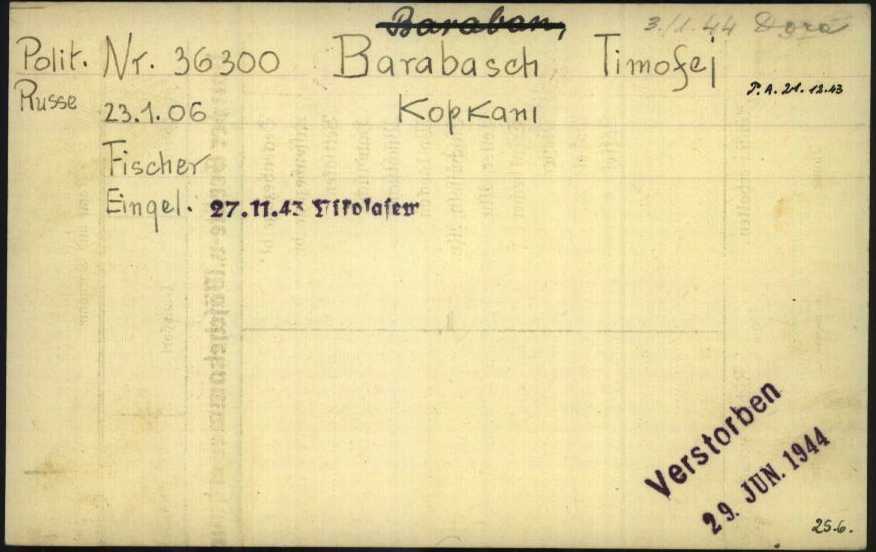 Baraban,
3./1.44 Dora
Polit. Nr. 36300 Barabasch Timofej
P.A. 21.12.43
Russe 23.1.06 Kopkani
Fischer
Eingel. 27.11.43 Nikolajew
Verstorben
29. JUN. 1944
25.6.